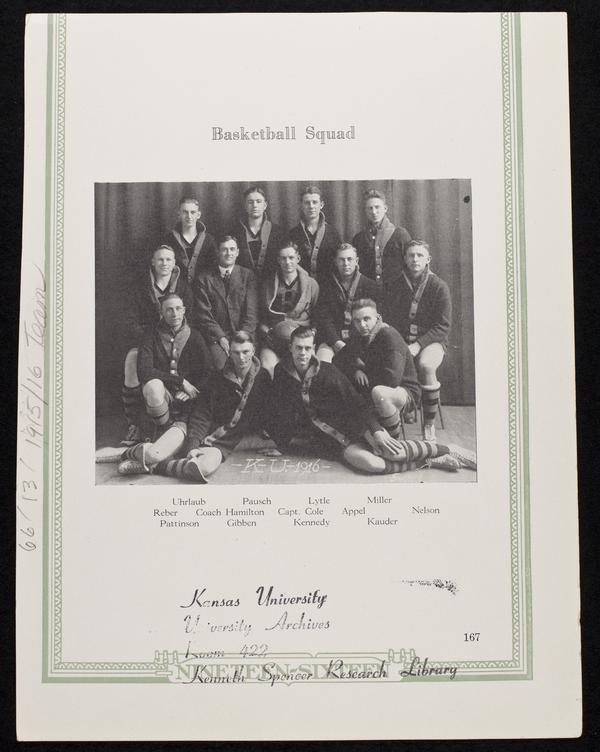 Basketball Squad
-K-U-1916-
Uhrlaub Pausch Lytle Miller
Reber Coach Hamilton Capt. Cole Appel Nelson
Pattinson Gibben Kennedy Kauder
66/13/ 1915/16 Team
Kansas University
University Archives
Room 422
Kenneth Spencer Research Library
167
NINETEEN-SIXTEEN